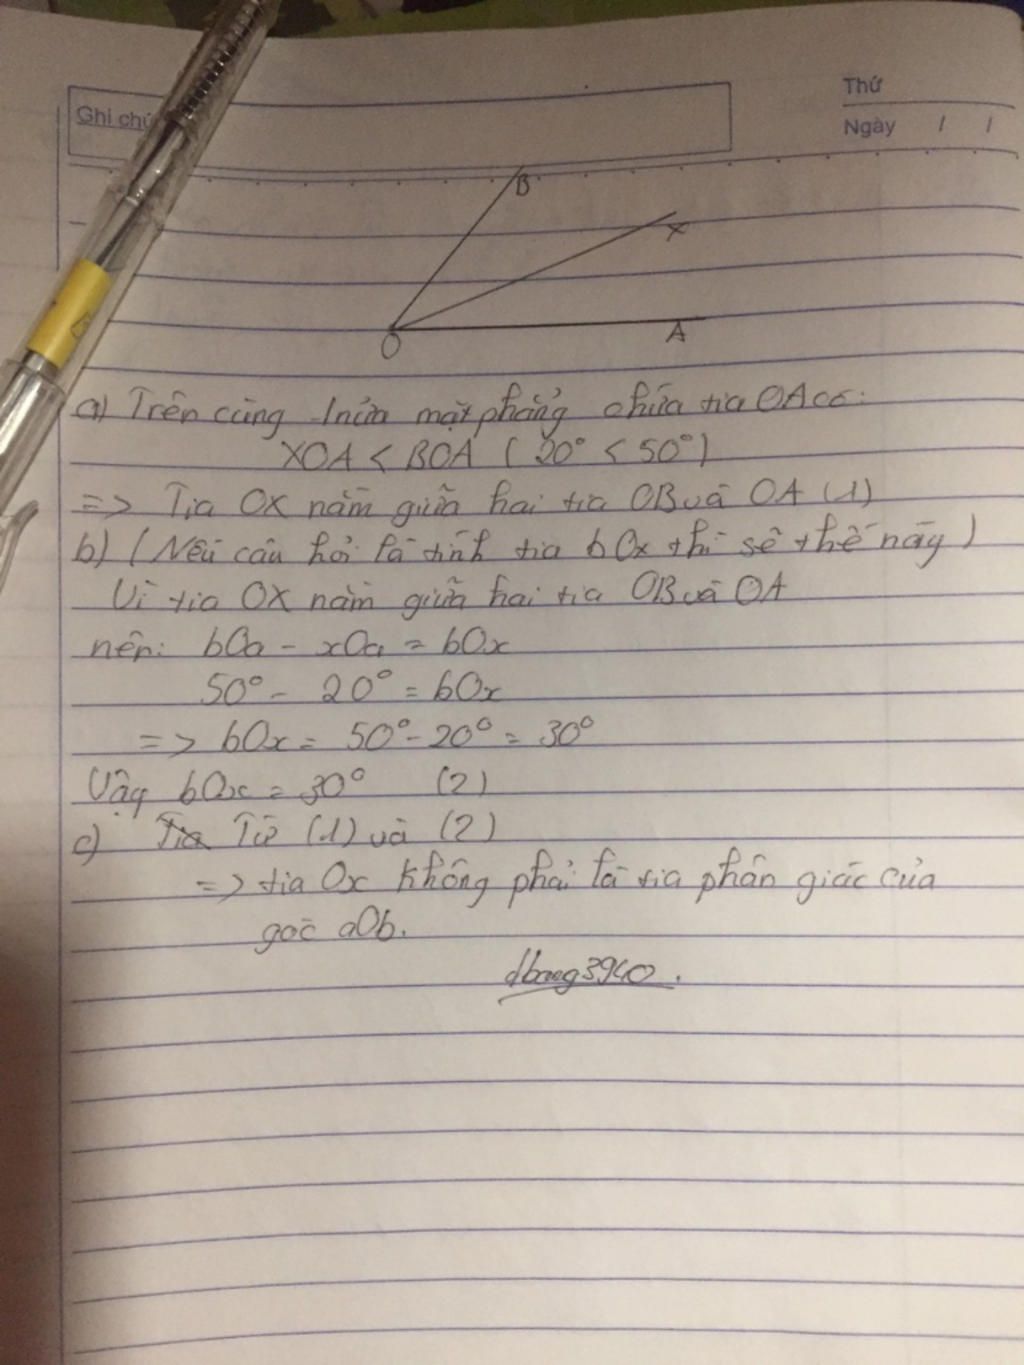 Ghi chú
Thứ
Ngày / /
B
x
O
A
a) Trên cùng 1 nửa mặt phẳng chứa tia OA có:
XOA < BOA ( 20° < 50° )
=> Tia OX nằm giữa hai tia OB và OA (1)
b) ( Nếu câu hỏi là tính tia bOx thì sẽ thế này )
Vì tia OX nằm giữa hai tia OB và OA
nên: bOa - xOa = bOx
50° - 20° = bOx
=> bOx = 50° - 20° = 30°
Vậy bOx = 30° (2)
c) Từ (1) và (2)
=> tia Ox không phải là tia phân giác của
góc aOb.